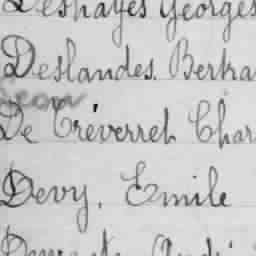 Deshayes Georges
Deslandes. Bertra
Jean
De Tréverret Char
Devy, Emile